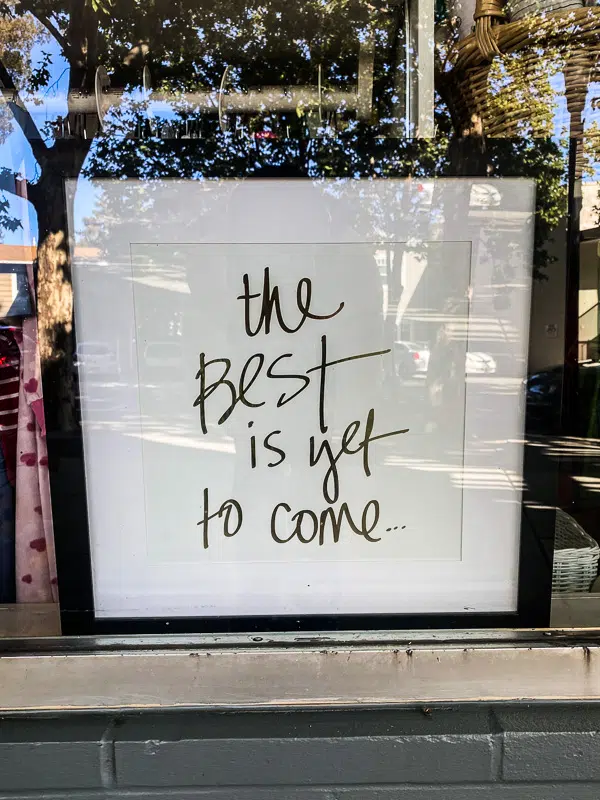 the
BEST
is yet
to come...